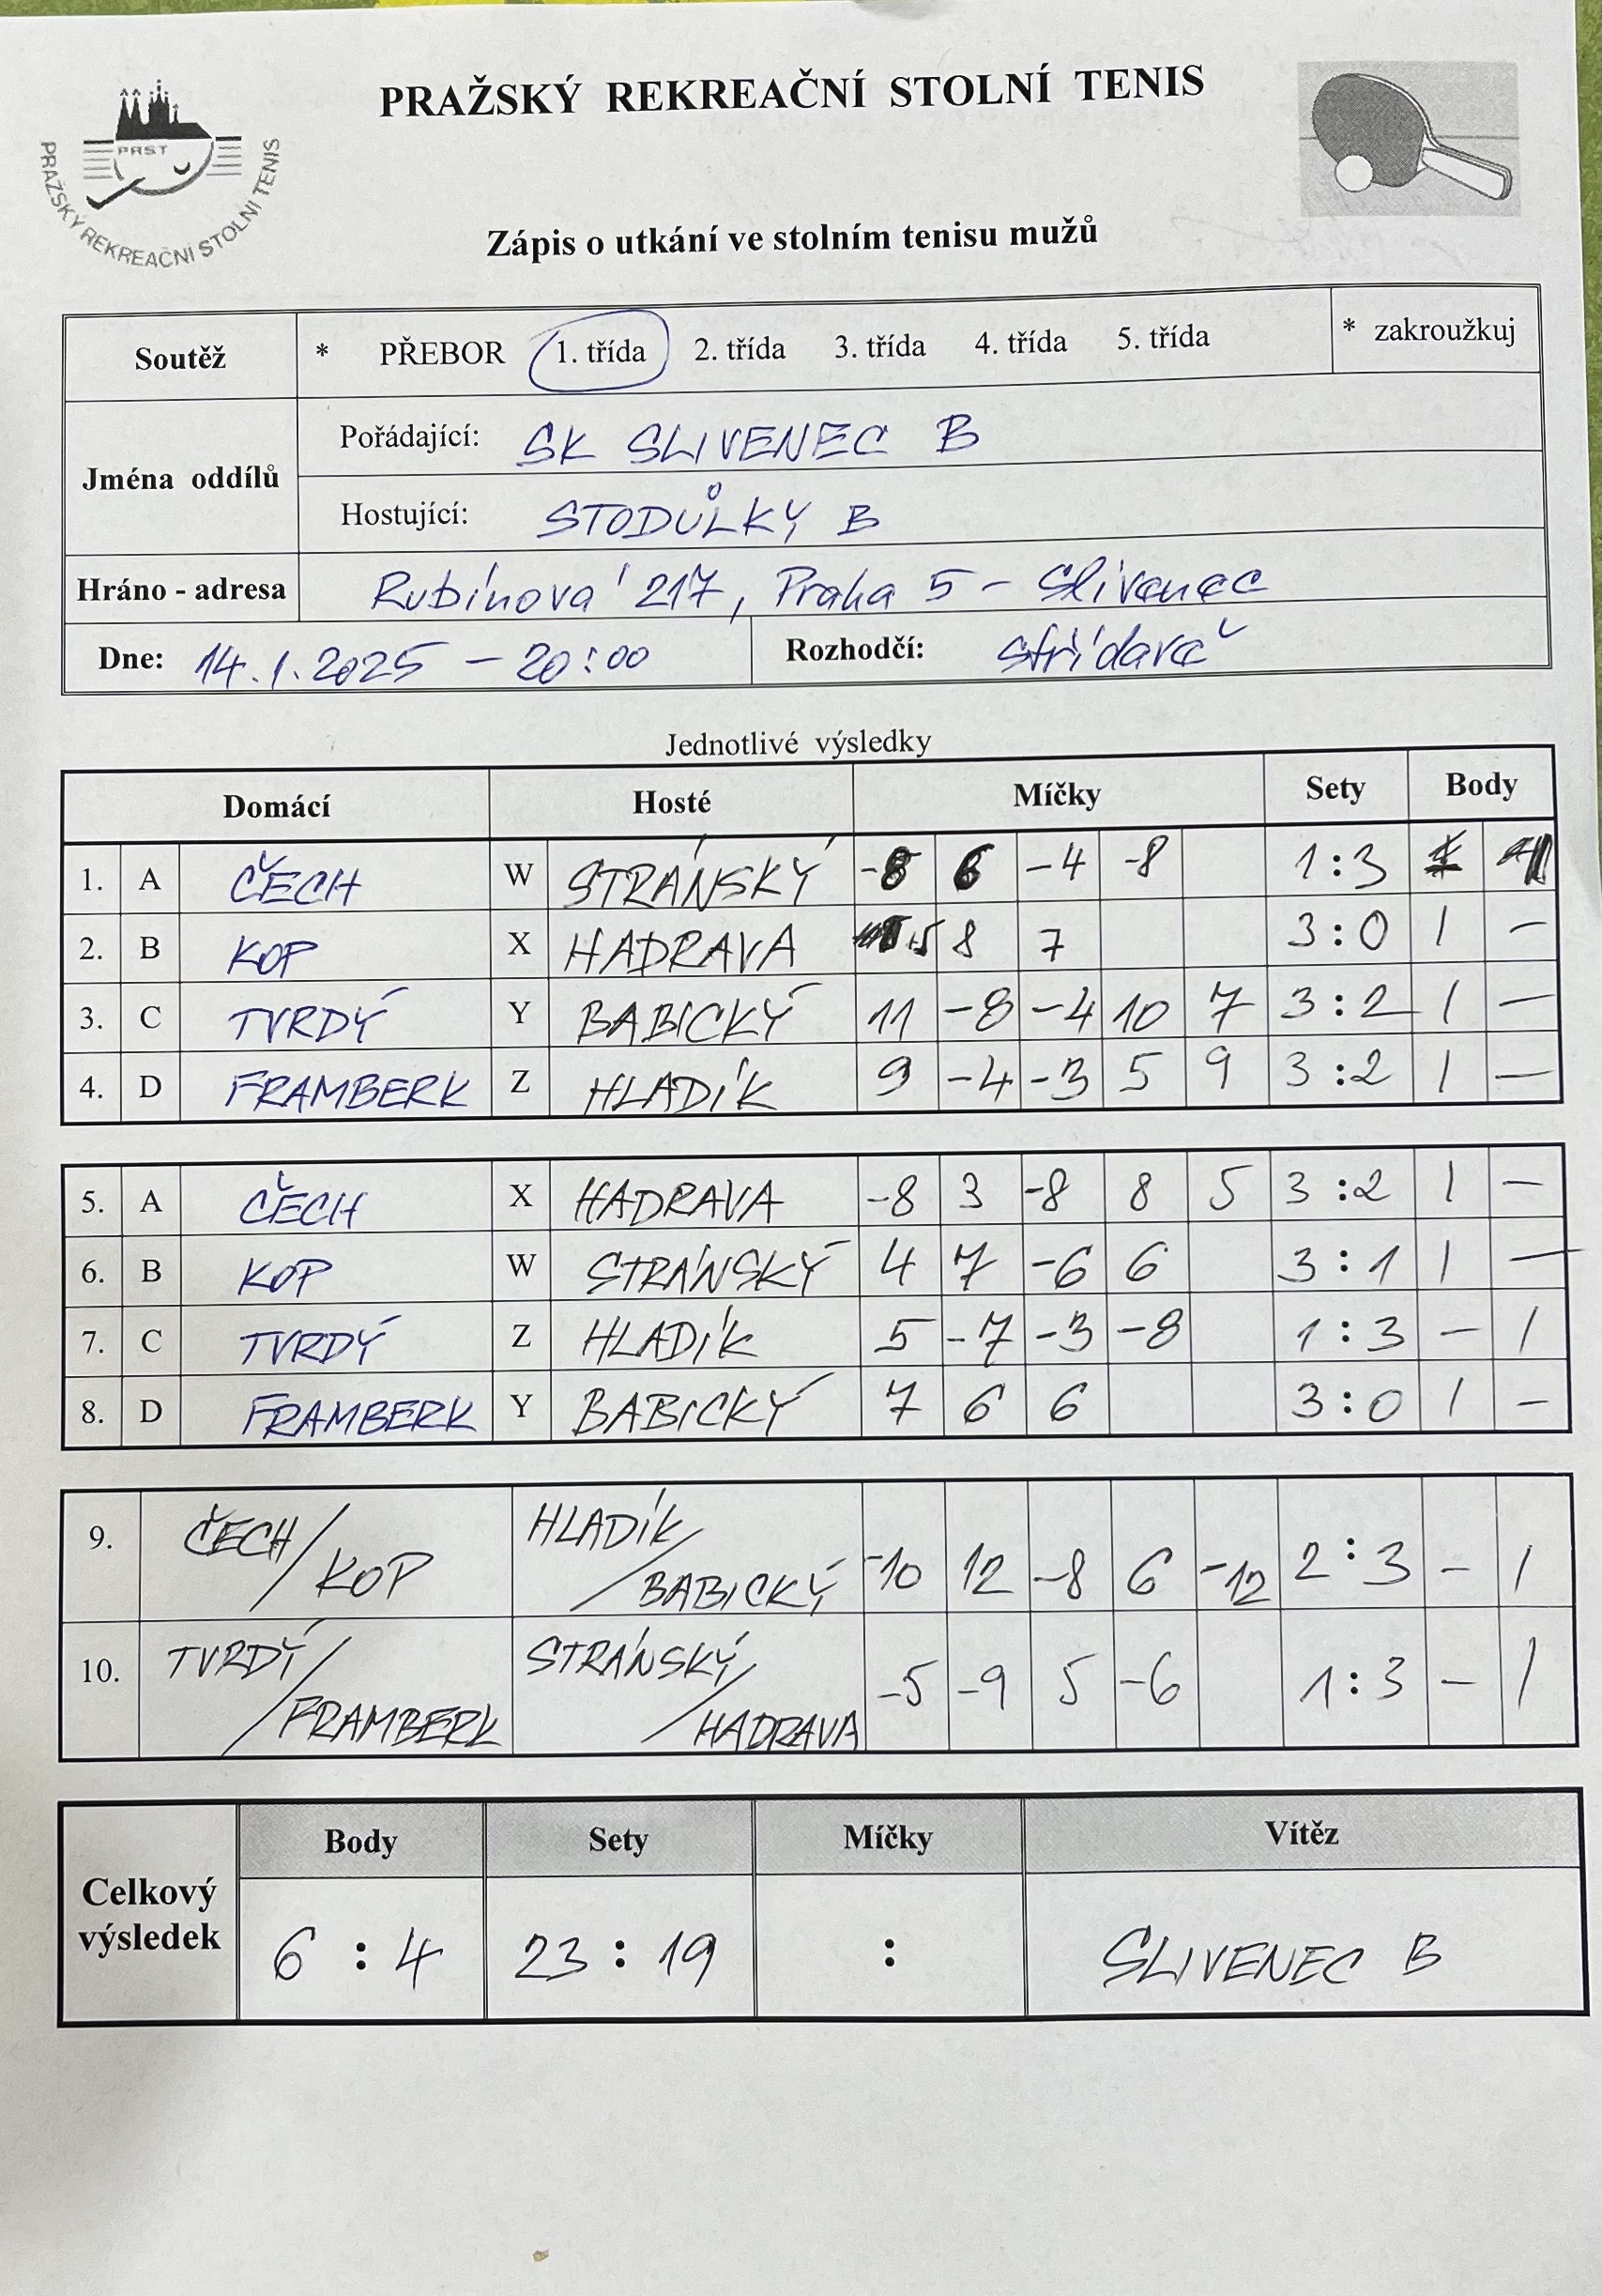 PRAŽSKÝ REKREAČNÍ STOLNÍ TENIS
PRST
PRAŽSKÝ REKREAČNÍ STOLNÍ TENIS
Zápis o utkání ve stolním tenisu mužů
Soutěž * PŘEBOR 1. třída 2. třída 3. třída 4. třída 5. třída * zakroužkuj
Jména oddílů
Pořádající: SK SLIVENEC B
Hostující: STODŮLKY B
Hráno - adresa Rubínová 217, Praha 5 - Slivenec
Dne: 14.1.2025 - 20:00 Rozhodčí: střídavě
Jednotlivé výsledky
Domácí Hosté Míčky Sety Body
1. A ČECH W STRÁNSKÝ -8 6 -4 -8 1:3
2. B KOP X HADRAVA 5 8 7 3:0 1 -
3. C TVRDÝ Y BABICKÝ 11 -8 -4 10 7 3:2 1 -
4. D FRAMBERK Z HLADÍK 9 -4 -3 5 9 3:2 1 -
5. A ČECH X HADRAVA -8 3 -8 8 5 3:2 1 -
6. B KOP W STRÁNSKÝ 4 7 -6 6 3:1 1 -
7. C TVRDÝ Z HLADÍK 5 -7 -3 -8 1:3 - 1
8. D FRAMBERK Y BABICKÝ 7 6 6 3:0 1 -
9. ČECH/KOP HLADÍK/BABICKÝ -10 12 -8 6 -12 2:3 - 1
10. TVRDÝ/FRAMBERK STRÁNSKÝ/HADRAVA -5 -9 5 -6 1:3 - 1
Celkový výsledek
Body Sety Míčky Vítěz
6:4 23:19 : SLIVENEC B